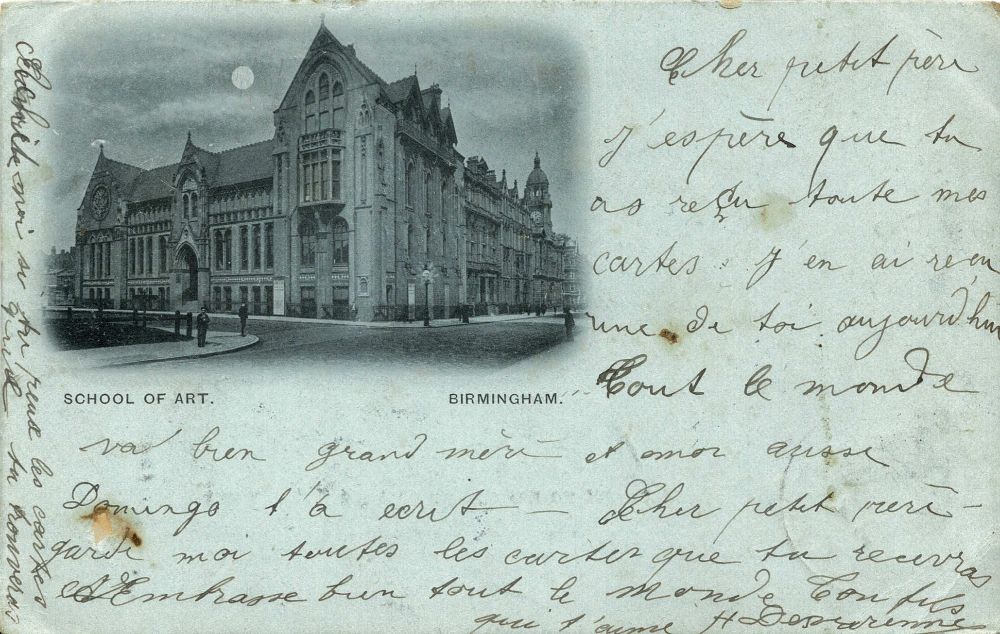 Cher petit père
J'espère que tu
as reçu toute mes
cartes. J'en ai reçu
une de toi aujourd'hui
Tout le monde
SCHOOL OF ART. BIRMINGHAM.
va bien grand mère et moi aussi
Domingo t'a ecrit — Cher petit père —
garde moi toutes les cartes que tu recevras
Embrasse bien tout le monde Ton fils
qui t'aime H
moi si tu peux les cartes
que tu trouveras